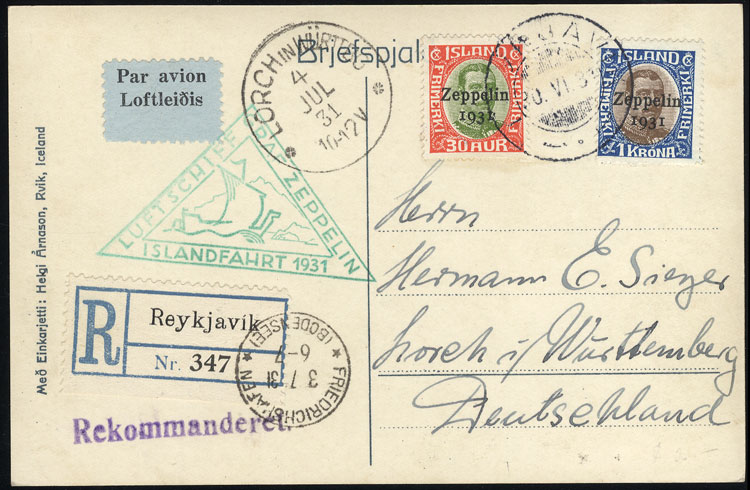 Bréfspjal
Par avion
Loftleiðis
LORCH IN WÜRTTBG
4
JUL
31
10-12V
ISLAND
FRIMERKI
FRIMERKI
Zeppelin
1931
30 AUR
30. VI. 31
ISLAND
FRIMERKI
FRIMERKI
Zeppelin
1931
1 KRÓNA
LUFTSCHIFF GRAF ZEPPELIN
ISLANDFAHRT 1931
Herrn
Hermann E. Sieger
Lorch i/ Württemberg
Deutschland
Með Einkarjetti: Helgi Árnason, Rvik, Iceland
R
Reykjavík
Nr. 347
FRIEDRICHSHAFEN
(BODENSEE)
3. 7. 31
6-7
Rekommanderet.